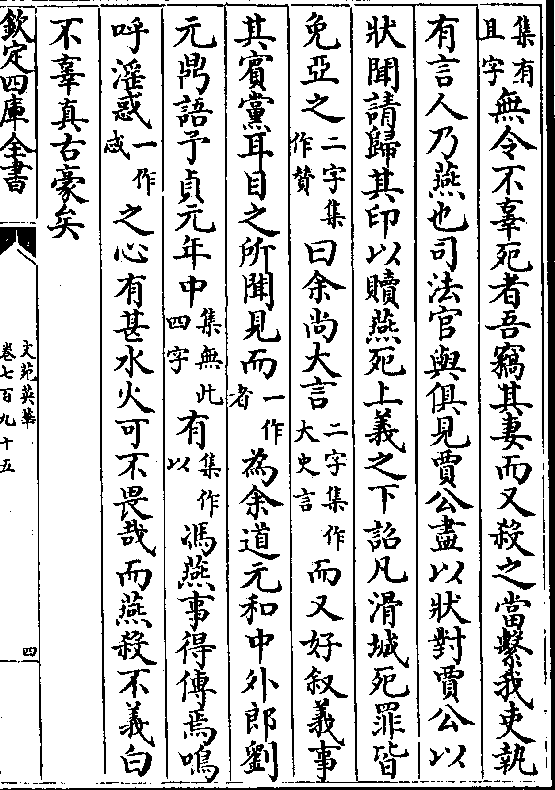 集有且字無令不辜死者吾竊其妻而又殺之當繫我吏執
有言人乃燕也司法官與俱見賈公盡以狀對賈公以
狀聞請歸其印以贖燕死上義之下詔凡滑城死罪皆
免亞之二字集作贊曰余尚大言二字集作大史言而又好叙義事
其賓黨耳目之所聞見而一作者為余道元和中外郎劉
元鼎語予貞元年中集無此四字有集作以馮燕事得傳焉嗚
呼淫惑一作惑之心有甚水火可不畏哉而燕殺不義白
不辜真古豪矣
欽定四庫全書
文苑英華
卷七百九十五
四